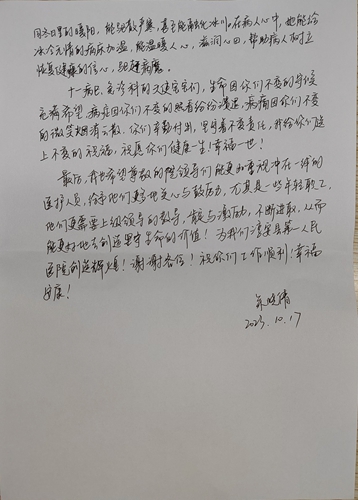 同冬日里的暖阳，能驱散严寒，甚至能融化冰川。在病人心中，她能给
冰冷无情的病床加温，能温暖人心，滋润心田，帮助病人树立
恢复健康的信心，驱赶病魔。
十一病区、急诊科的天使宝宝们，生命因你们不变的守候
充满希望，病症因你们不变的照看纷纷溃逃，病痛因你们不变
的微笑烟消云散。你们辛勤付出，坚守着不变责任，我给你们送
上不变的祝福，祝愿你们健康一生！幸福一世！
最后，我也希望尊敬的院领导们能更加重视冲在一线的
医护人员，给予他们更多地关心与鼓励，尤其是一些年轻职工，
他们更需要上级领导的教导、鼓与激励，不断进取，从而
能更好地去创造坚守生命的价值！为我们淳县第一人民
医院创造辉煌！谢谢各位！祝你们工作顺利！幸福
安康！
2023.10.17